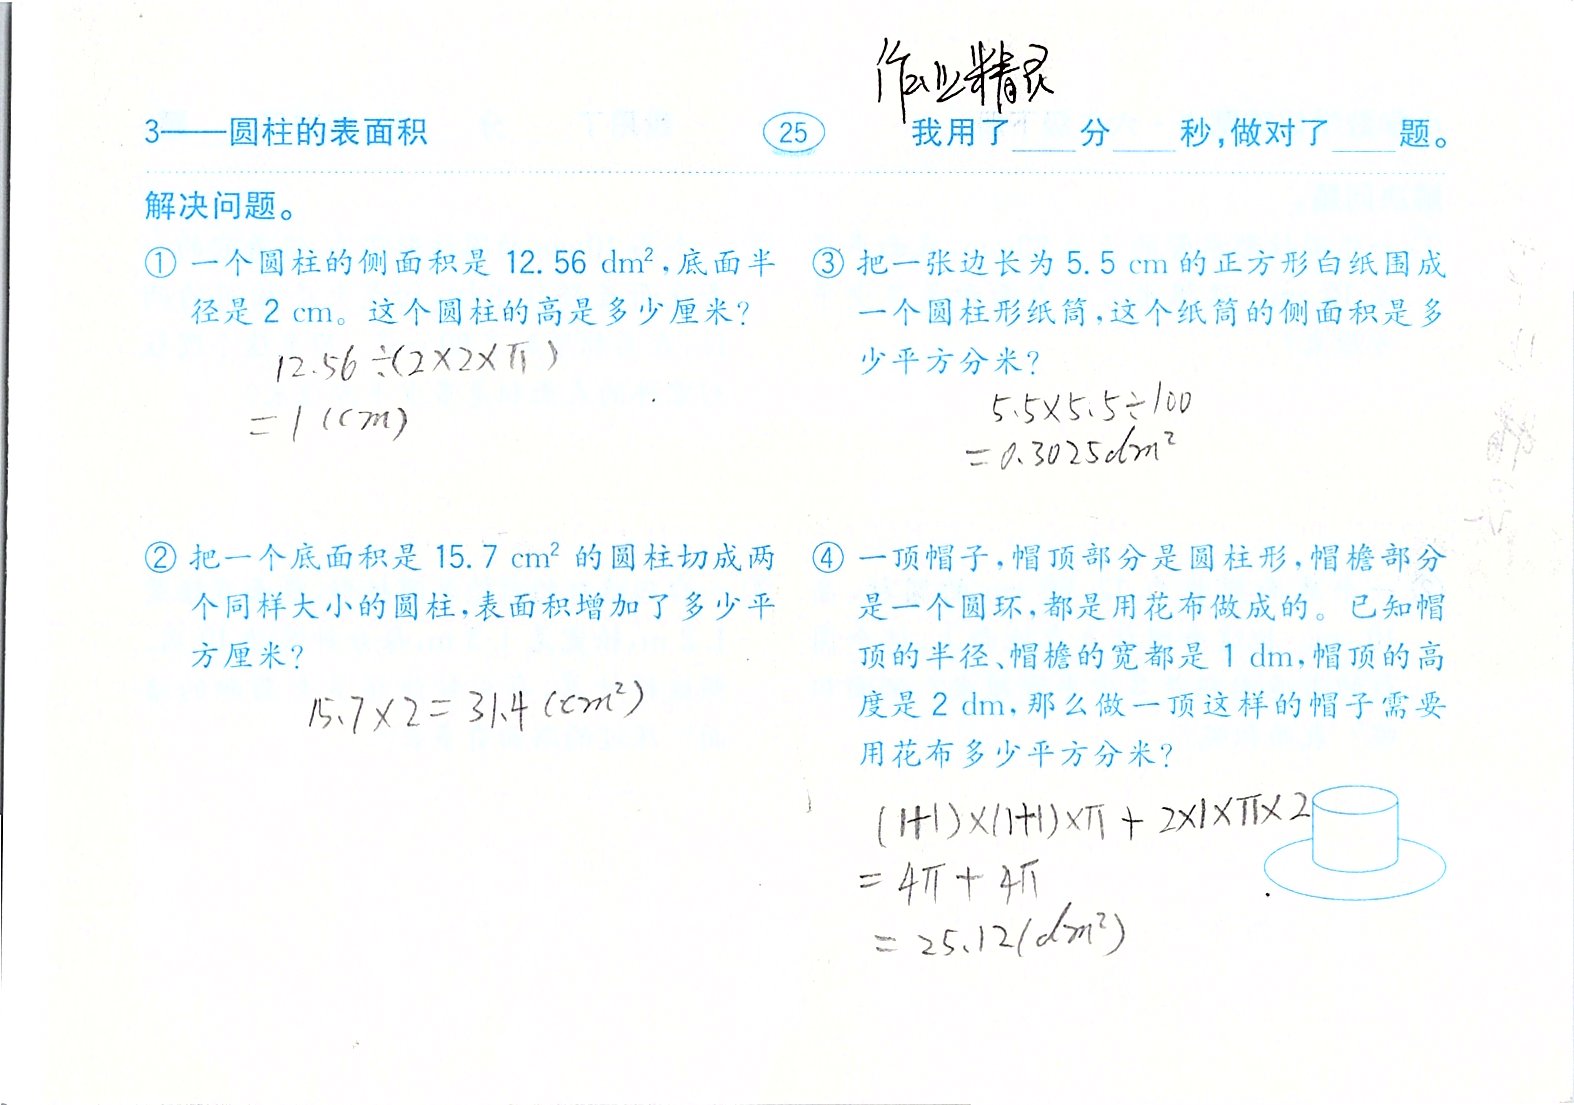 作业精灵
3——圆柱的表面积 25 我用了____分____秒,做对了____题。
解决问题。
① 一个圆柱的侧面积是 12.56 dm²,底面半
径是 2 cm。这个圆柱的高是多少厘米?
12.56÷(2×2×π)
=1(cm)
② 把一个底面积是 15.7 cm² 的圆柱切成两
个同样大小的圆柱,表面积增加了多少平
方厘米?
15.7×2=31.4(cm²)
③ 把一张边长为 5.5 cm 的正方形白纸围成
一个圆柱形纸筒,这个纸筒的侧面积是多
少平方分米?
5.5×5.5÷100
=0.3025dm²
④ 一顶帽子,帽顶部分是圆柱形,帽檐部分
是一个圆环,都是用花布做成的。已知帽
顶的半径、帽檐的宽都是 1 dm,帽顶的高
度是 2 dm,那么做一顶这样的帽子需要
用花布多少平方分米?
(1+1)×(1+1)×π+2×1×π×2
=4π+4π
=25.12(dm²)